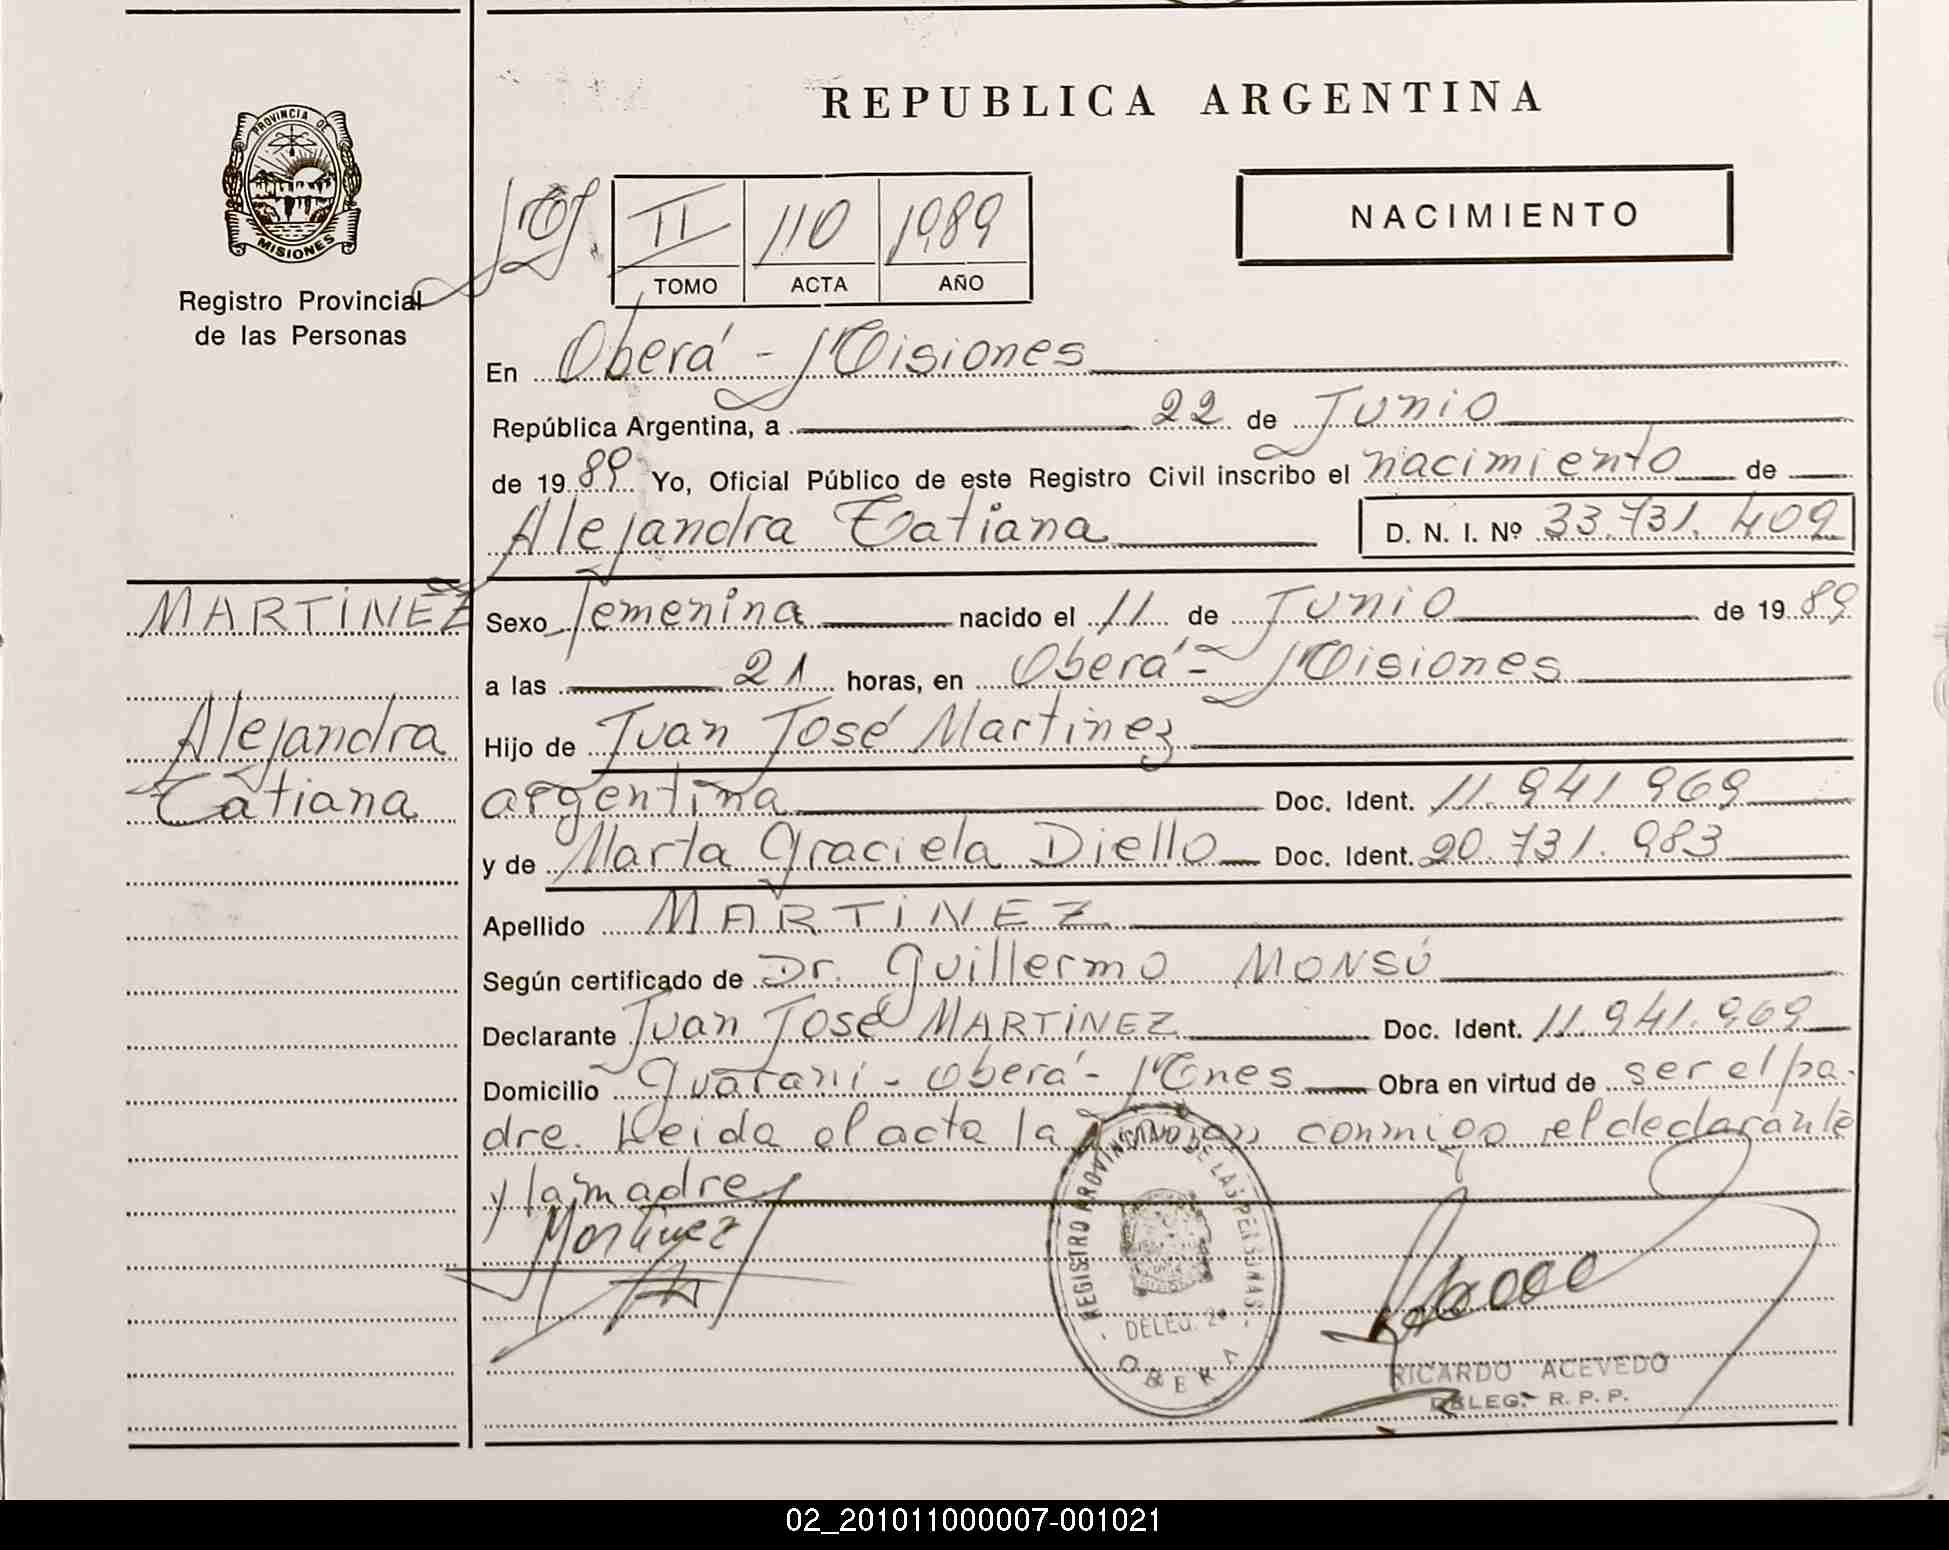 REPUBLICA ARGENTINA
PROVINCIA DE
MISIONES
Registro Provincial
de las Personas
II 110 1989
TOMO ACTA AÑO
NACIMIENTO
En Oberá - Misiones
República Argentina, a 22 de Junio
de 1989 Yo, Oficial Público de este Registro Civil inscribo el nacimiento de
Alejandra Tatiana D. N. I. Nº 33.731.409
MARTINEZ
Alejandra
Tatiana
Sexo femenina nacido el 11 de Junio de 1989
a las 21 horas, en Oberá - Misiones
Hijo de Juan José Martinez
argentina Doc. Ident. 11.941.969
y de Marta Graciela Diello Doc. Ident. 20.731.983
Apellido MARTINEZ
Según certificado de Dr. Guillermo MONSÚ
Declarante Juan José MARTINEZ Doc. Ident. 11.941.969
Domicilio Guaraní - Oberá - Mnes Obra en virtud de ser el pa-
dre. Leida el acta la firman conmigo el declarante
y la madre
Martinez
REGISTRO PROVINCIAL DE LAS PERSONAS
DELEG.
OBERA
RICARDO ACEVEDO
DELEG. R. P. P.
02_201011000007-001021